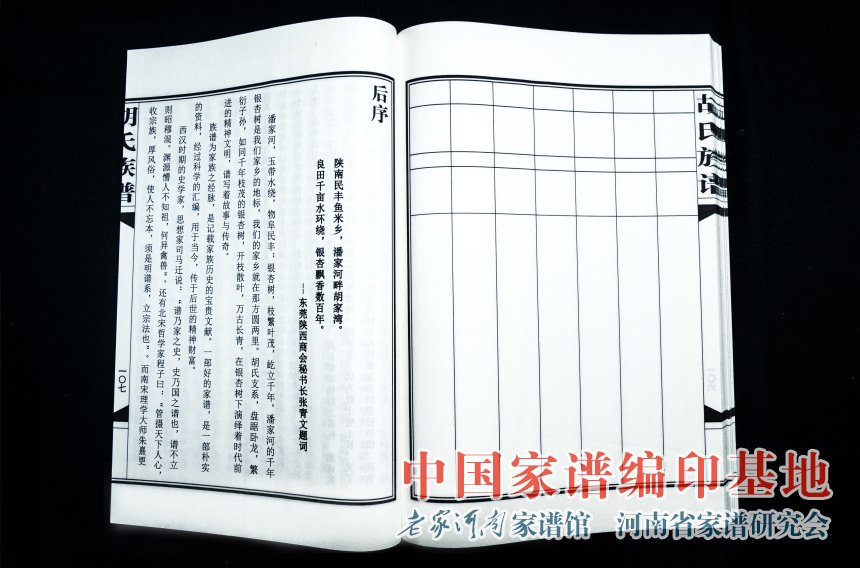 胡氏族谱
一〇六
后序
陕南民丰鱼米乡，潘家河畔胡家湾。
良田千亩水环绕，银杏飘香数百年。
——东莞陕西商会秘书长张青文题词
潘家河，玉带水绕，物阜民丰；银杏树，枝繁叶茂，屹立千年。潘家河的千年
银杏树是我们家乡的地标，我们的家乡就在那方圆两里。胡氏支系，盘踞卧龙，繁
衍子孙，如同千年枝茂的银杏树，开枝散叶，万古长青，在银杏树下演绎着时代前
进的精神文明，谱写着故事与传奇。
族谱为家族之经脉，是记载家族历史的宝贵文献。一部好的家谱，是一部朴实
的资料，经过科学的汇编，用于当今，传于后世的精神财富。
西汉时期的史学家，思想家司马迁说：“谱乃家之史，史乃国之谱也，谱不立
则昭穆混。渊源懵人不知祖，何异禽兽”。还有北宋哲学家程子曰：“管摄天下人心，
收宗族，厚风俗，使人不忘本，须是明谱系，立宗法也”。而南宋理学大师朱熹更
胡氏族谱
一〇七
中国家谱编印基地
老家河南家谱馆 河南省家谱研究会